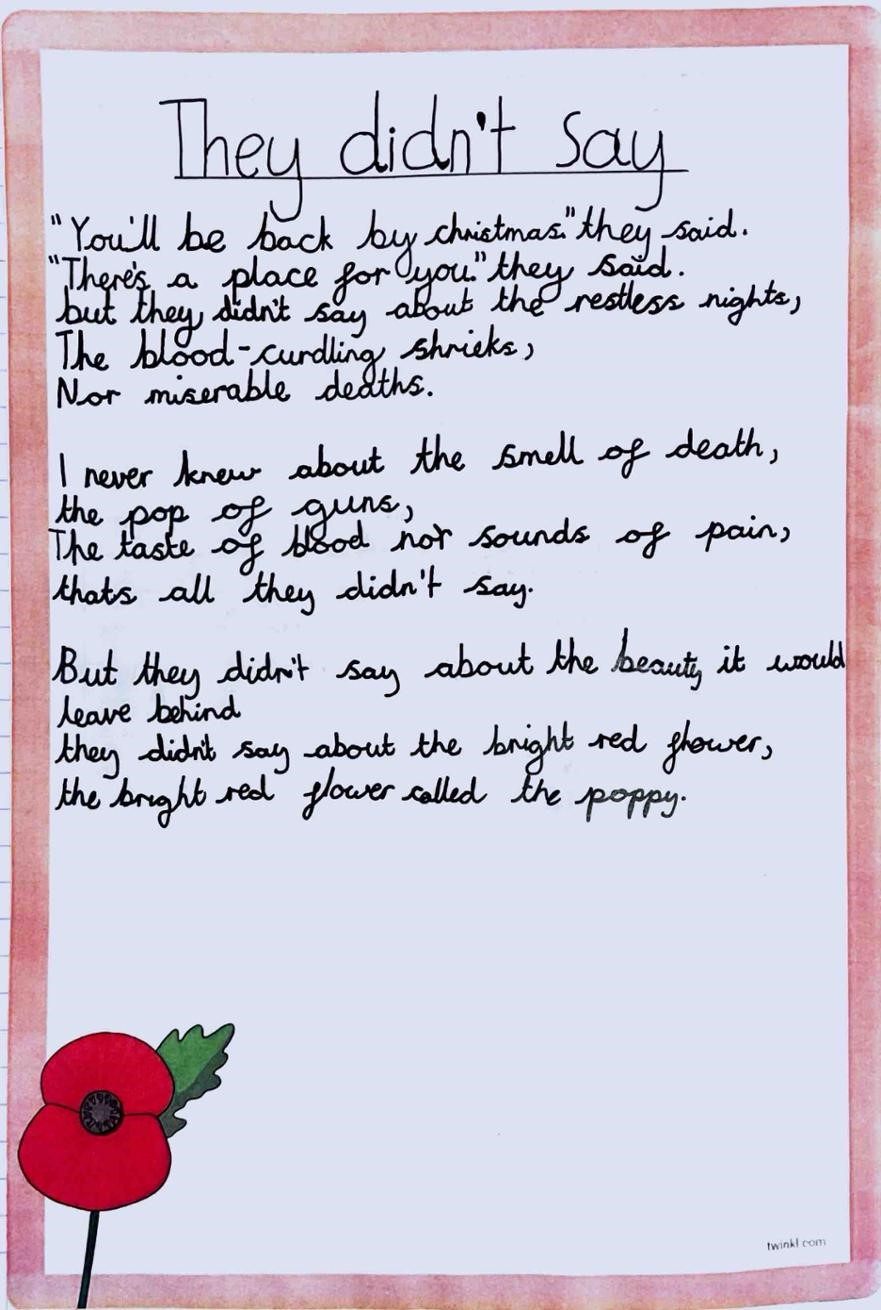 They didn't say
"You'll be back by christmas." they said.
"There's a place for you." they said.
but they didn't say about the restless nights,
The blood-curdling shrieks,
Nor miserable deaths.
I never knew about the smell of death,
the pop of guns,
The taste of blood nor sounds of pain,
thats all they didn't say.
But they didn't say about the beauty it would
leave behind
they didn't say about the bright red flower,
the bright red flower called the poppy.
twinkl.com